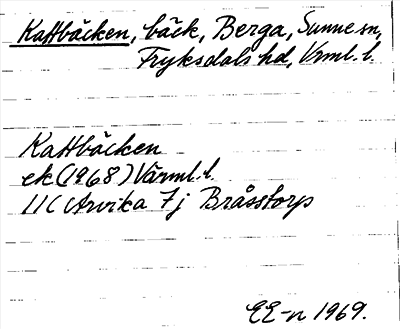 Kattbäcken, bäck, Berga, Sunne sn,
Fryksdals hd, Vrml. l.
Kattbäcken
ek (1968) Värml. l.
11C Arvika 7j Bråsstorp
EE-n 1969.